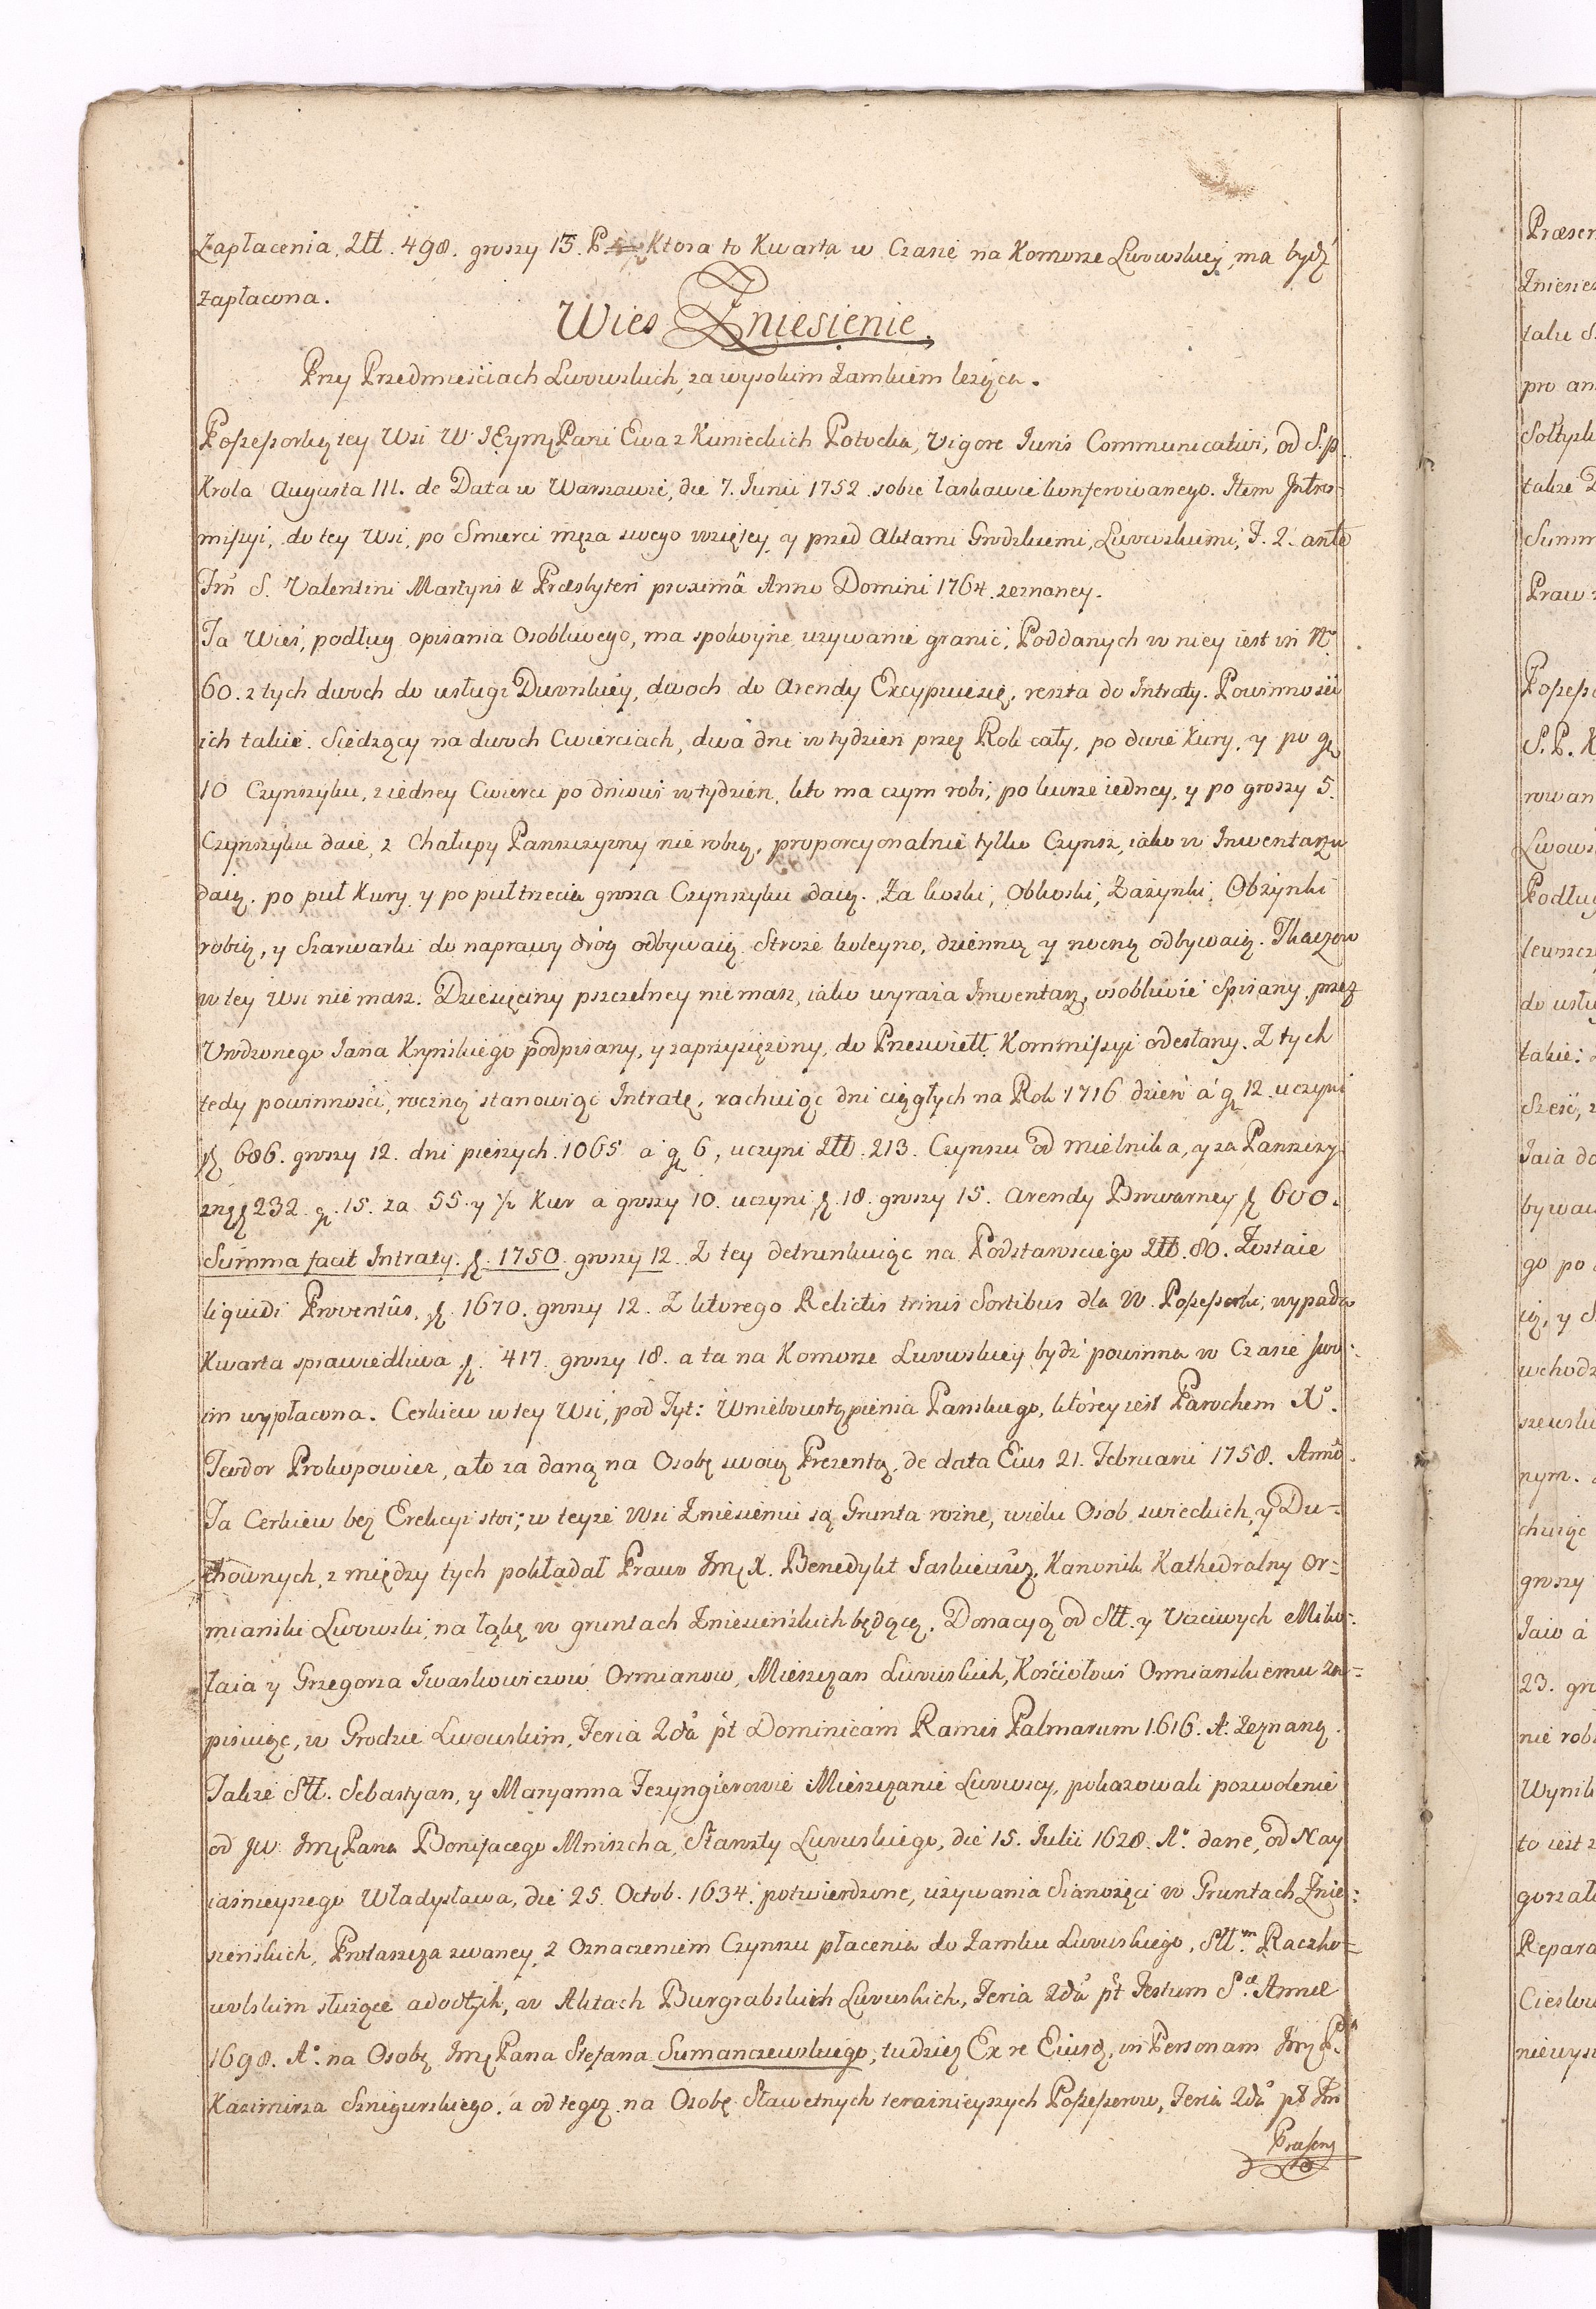 Zapłacenia, Złł. 498. groszy 13. Ktora to Kwarta w Czasie na Komorze Lwowskiey, ma bydź
zapłacona.
Wies Zniesienie.
Przy Przedmieściach Lwowskich, za wysokim Zamkiem leżąca.
Possessorką tey Wsi W JEymę Pani Ewa z Kunickich Potocka, Vigore Juris Communicativi, od S.p.
Krola Augusta III. de Data w Warszawie, die 7. Junii 1752 sobie łaskawie konferowanego. Item Intro-
missyi, do tey Wsi, po Smierci męża swego wziętey, y przed Aktami Grodzkiemi, Lwowskiemi, F. 2. ante
Fm̃ S. Valentini Martyris & Præsbyteri proximâ Anno Domini 1764. zeznaney.
Ta Wieś, podług opisania Osobliwego, ma spokoyne używanie granic, Poddanych w niey iest in No.
60. z tych dwoch do usługi Dworskiey, dwoch do Arendy Excypuie się, reszta do Intraty. Powinności
ich takie. Siedzący na dwoch Cwierciach, dwa dni w tydzien przez Rok cały, po dwie Kury, y po gr
10 Czynszyku, z iedney Cwierci po dniowi w tydzien, kto ma czym robi, po kurze iedney, y po groszy 5.
Czynszyku daie, z Chałupy Pańszczyzny nie robią, proporcyonalnie tylko Czynsz, iako w Inwentarzu
daią. po puł Kury y po pułtrzecia grosza Czynszyku daią. Za koski, Obkoski, Zażynki, Obżynki
robią, y Szarwarki do naprawy dróg odbywaią. Stroże koleyno, dzienną y nocną odbywaią. Tkaczow
w tey Wsi nie masz. Dziesięciny pszczelney nie masz, iako wyraża Inwentarz, osobliwie Spisany przez
Urodzonego Jana Kryńskiego podpisany, y zaprzysiężony, do Prześwietł. Kommissyi odesłany. Z tych
tedy powinności, roczną stanowiąc Intratę, rachuiąc dni ciągłych na Rok 1716 dzień á gr 12. uczyni
zł 686. groszy 12. dni pieszych. 1065 a gr 6, uczyni Złł. 213. Czynszu od mielnika, y za Panszczy-
znę zł 232. gr. 15. za 55. y ½ Kur a groszy 10. uczyni zł. 18. groszy 15. Arendy Browarney zł 600.
Summa facit Intraty. zł. 1750. groszy 12. Z tey detrunkuiąc na Podstarosciego Złł. 80. Zostaie
liquidi Proventûs, zł. 1670. groszy 12. Z ktorego Relictis trinis Sortibus dla W. Possessorki, wypada
Kwarta sprawiedliwa zł. 417. groszy 18. a ta na Komorze Lwowskiey bydź powinna w Czasie swo-
im wypłacona. Cerkiew w tey Wsi, pod Tyt: Wniebowstąpienia Panskiego, którey iest Parochem Xo.
Teodor Prokopowicz, a to za daną na Osobę swoią Prezentą, de data Eius 21. Februarii 1758. Anno.
Ta Cerkiew bez Erekcyi stoi; w teyże Wsi Zniesieniu są Grunta rożne, wielu Osob swieckich, y Du-
chownych, z między tych pokładał Prawo Jmę X. Benedykt Jaśkiewicz, Kanonik Kathedralny Or-
miański Lwowski, na łąkę w gruntach Zniesieńskich będącą. Donacyą od Słł. y Uczciwych Miko-
łaia y Grzegorza Jwaskowiczow Ormianow, Mieszczan Lwowskich, Kościołowi Ormianskiemu za-
pisuiąc, w Grodzie Lwowskim, Feria 2dâ pt Dominicam Ramis Palmarum 1616. A. Zeznaną.
Także Słł. Sebastyan, y Maryanna Jezyngierowie Mieszczanie Lwowscy, pokazowali pozwolenie
od JW. Jmę Pana Bonifacego Mniszcha, Starosty Lwowskiego, die 15. Julii 1628. Ao. dane, od Nay
iaśnieyszego Władysława, die 25. Octob. 1634. potwierdzone, używania Sianożęci w Gruntach Znie-
sieńskich, Protaszcza zwaney, z Oznaczeniem Czynszu płacenia do Zamku Lwowskiego, Słł.m Raczko-
wskim służące adodtych, w Aktach Burgrabskich Lwowskich, Feria 2dâ pt Festum Sæ. Annæ
1698. Ao. na Osobę Jmę Pana Stefana Sumanczewskiego, tudziez Ex re Eiusd. in Personam Jmę P.
Kazimirza Sznigurskiego. á od tegoż na Osobę Sławetnych teraźnieyszych Possessorow, Feria 2dâ pt Fm̃
Præsen